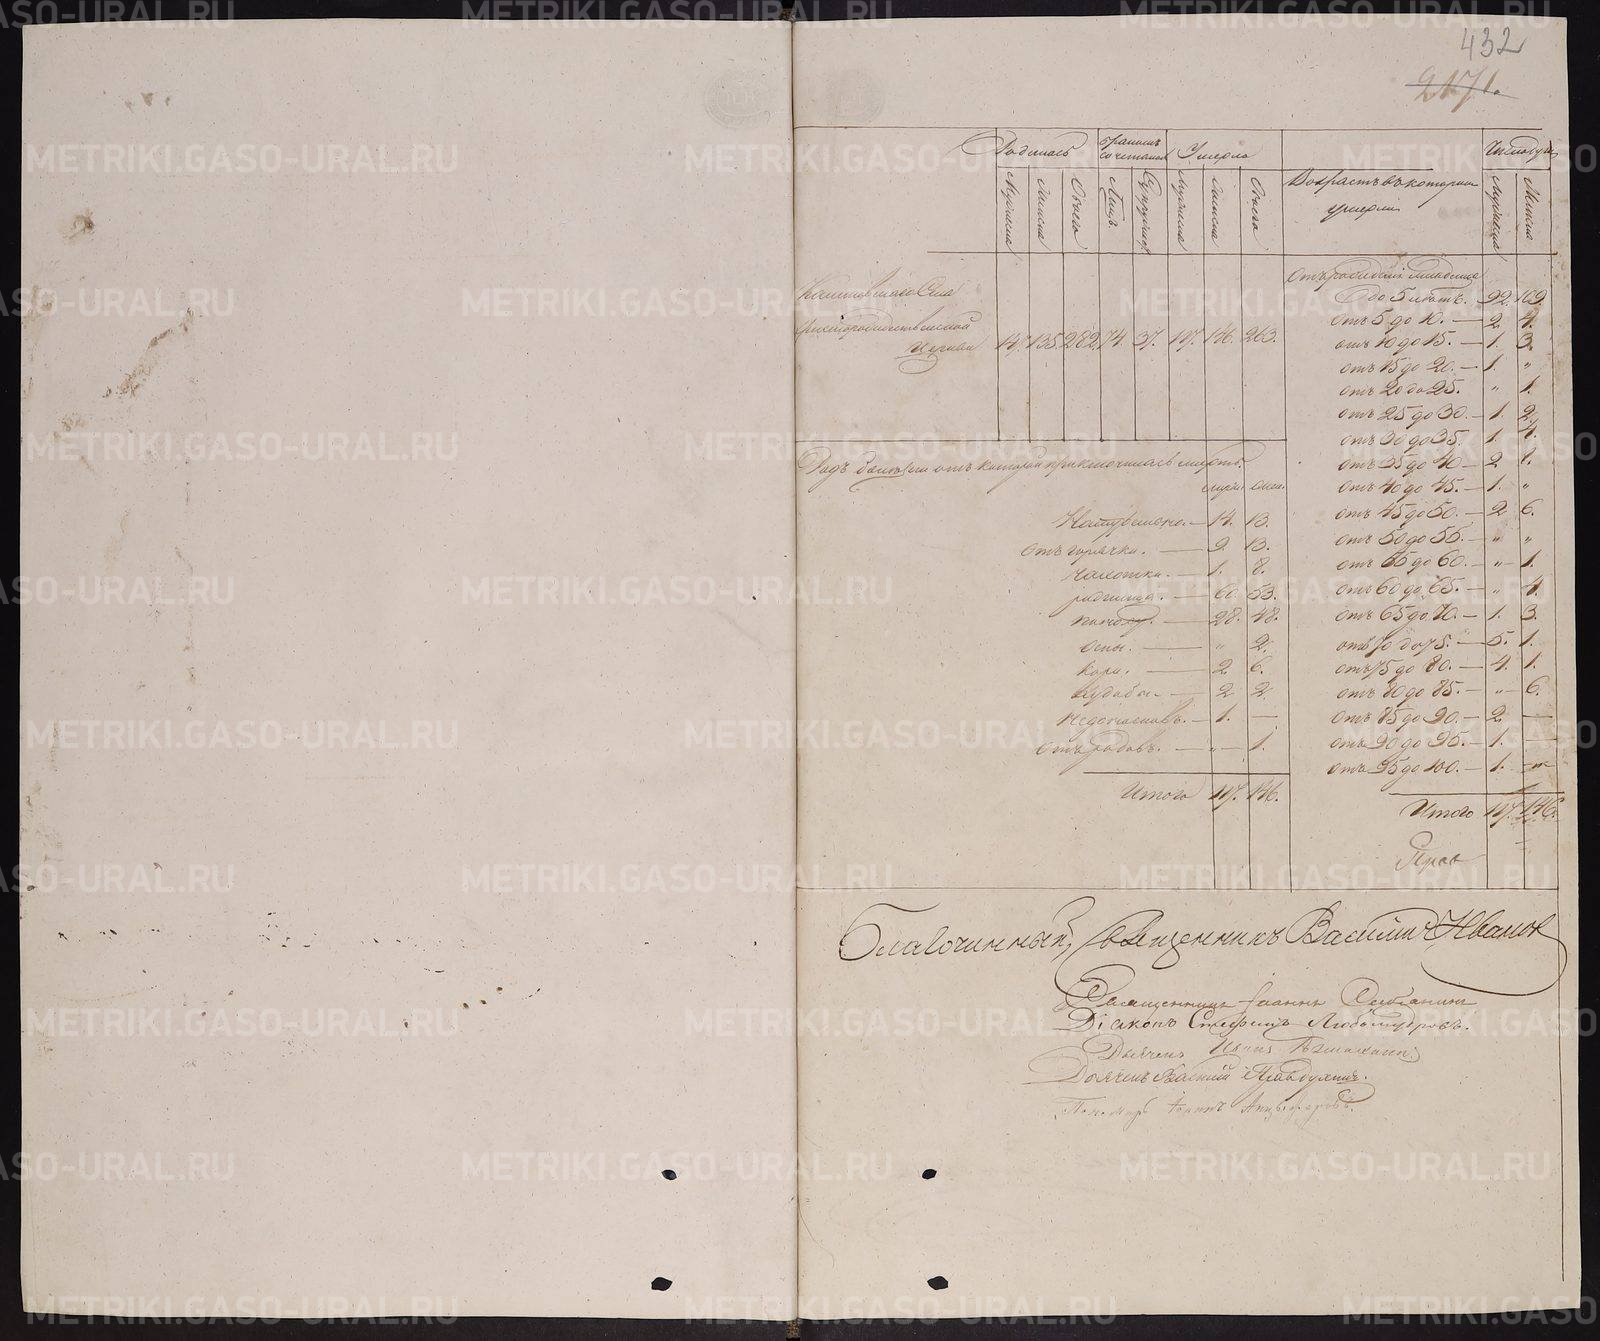 432
2171.
Родилось
бракомъ сочеталось
Умерло
Возрастъ въ которомъ умерли
Число душъ
Мужеска
Женска
Обоего
Лицъ
Супружествъ
Мужеска
Женска
Обоего
Мужеска
Женска
Села
Христорождественской
Церкви 147. 135. 282. 74. 37. 117. 146. 263.
Отъ рожденія младенца
до 5 лѣтъ. 92. 109.
отъ 5 до 10. — 2. 4.
отъ 10 до 15. — 1. 3.
отъ 15 до 20. — 1. "
отъ 20 до 25. " 1.
отъ 25 до 30. — 1. 2.
отъ 30 до 35. 1. 4.
отъ 35 до 40 — 2 1.
отъ 40 до 45. — 1. "
отъ 45 до 50. — 2 6.
отъ 50 до 55. — " "
отъ 55 до 60. — " — 1.
отъ 60 до 65. — " 4
отъ 65 до 70. — 1. 3.
отъ 70 до 75. — 5. 1.
отъ 75 до 80. — 4. 1.
отъ 80 до 85. — " — 6.
отъ 85 до 90. — 2 —
отъ 90 до 95. — 1. —
отъ 95 до 100. — 1. — " —
Итого 117. 146.
Родъ болѣзни отъ которой приключилась смерть.
муж. жен.
Натурально. — 14. 13.
Отъ горячки. — 9. 13.
чахотки. — 1. 8.
родимца. — 60. 53.
поносу. — 28. 48.
Оспы. — " 2.
кори. — 2 6.
2 2
1. —
Отъ родовъ. — " — 1.
Итого 117. 146.
Благочинный, Священникъ Василій Ивановъ
Священникъ Іоаннъ
Діаконъ Стефанъ Любомудровъ.
Дьячекъ Иванъ
Дьячекъ Василій
Пономарь Іоаннъ